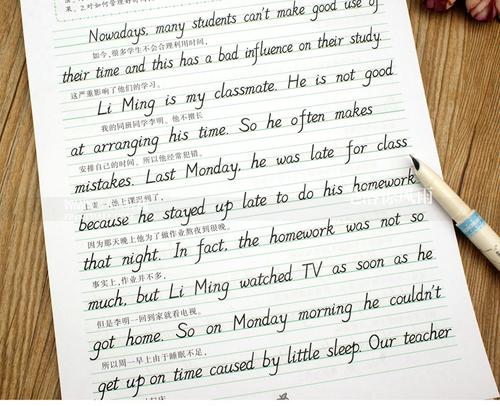 果。2.对如何管理好时
Nowadays, many students can't make good use of
如今,很多学生不会合理利用时间,
their time and this has a bad influence on their study.
这严重影响了他们的学习。
Li Ming is my classmate. He is not good
我的同班同学李明。他不擅长
at arranging his time. So he often makes
安排自己的时间。所以他经常犯错。
mistakes. Last Monday, he was late for class
上周一,他上课迟到了,
because he stayed up late to do his homework
因为那天晚上他为了做作业熬夜到很晚。
that night. In fact, the homework was not so
事实上,作业并不多,
much, but Li Ming watched TV as soon as he
但是李明一回到家就看电视。
got home. So on Monday morning he couldn't
所以周一早上由于睡眠不足,
get up on time caused by little sleep. Our teacher